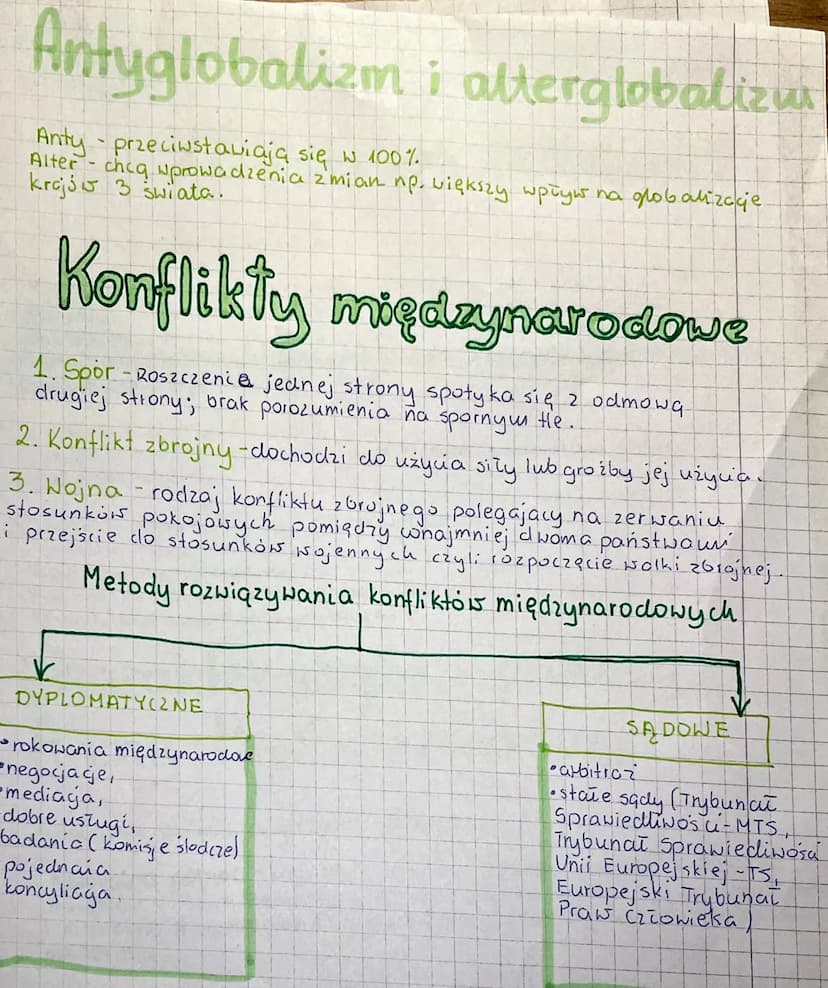 Antyglobalizm i alterglobalizm
Anty - przeciwstawiają się w 100%.
Alter - chcą wprowadzenia zmian np. większy wpływ na globalizację
krajów 3 świata.
Konflikty międzynarodowe
1. Spór - Roszczenie jednej strony spotyka się z odmową
drugiej strony; brak porozumienia na spornym tle.
2. Konflikt zbrojny - dochodzi do użycia siły lub groźby jej użycia.
3. Wojna - rodzaj konfliktu zbrojnego polegający na zerwaniu
stosunków pokojowych pomiędzy conajmniej dwoma państwami
i przejście do stosunków wojennych czyli rozpoczęcie walki zbrojnej.
Metody rozwiązywania konfliktów międzynarodowych
DYPLOMATYCZNE
• rokowania międzynarodowe
• negocjacje,
• mediacja,
dobre usługi,
badania (komisje śledcze)
pojednaia
koncyliacja.
SĄDOWE
• arbitraż
• stałe sądy (Trybunał
Sprawiedliwości - MTS,
Trybunał Sprawiedliwości
Unii Europejskiej - TS,
Europejski Trybunał
Praw Człowieka)